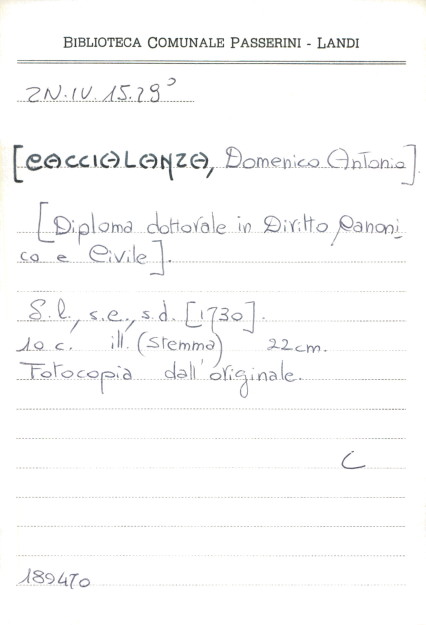 BIBLIOTECA COMUNALE PASSERINI - LANDI
2N.IV.15.29³
[CACCIALANZA, Domenico Antonio].
[Diploma dottorale in Diritto Canoni
co e Civile].
S.l., s.e., s.d. [1730].
10 c. ill. (Stemma) 22 cm.
Fotocopia dall'originale.
C
189470